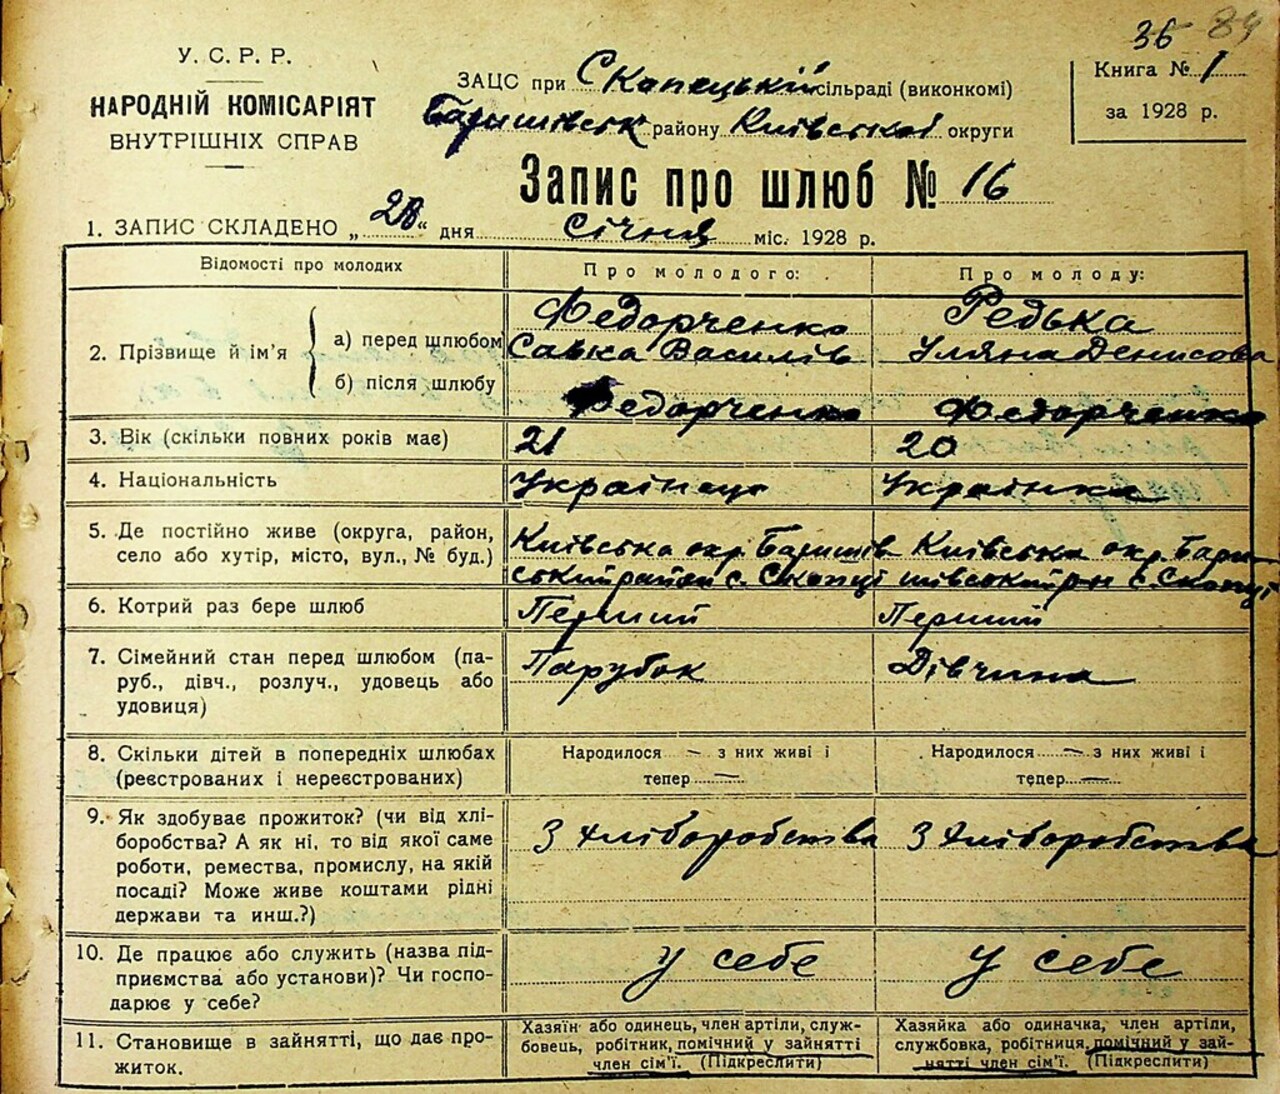 36 84
У. С. Р. Р.
НАРОДНІЙ КОМІСАРІЯТ
ВНУТРІШНІХ СПРАВ
ЗАЦС при Скопецькій сільраді (виконкомі)
Баришівськ району Київської округи
Книга № 1
за 1928 р.
Запис про шлюб № 16
1. ЗАПИС СКЛАДЕНО „28“ дня Січня міс. 1928 р.
Відомості про молодих Про молодого: Про молоду:
2. Прізвище й ім'я
а) перед шлюбом Федорченко Савка Василів Редька Уляна Денисова
б) після шлюбу Федорченко Федорченко
3. Вік (скільки повних років має) 21 20
4. Національність Українець Українка
5. Де постійно живе (округа, район,
село або хутір, місто, вул., № буд.)
Київська окр. Баришів
ський район с. Скопці
Київська окр. Бари-
шівський рн с. Скопці
6. Котрий раз бере шлюб Перший Перший
7. Сімейний стан перед шлюбом (па-
руб., дівч., розлуч., удовець або
удовиця)
Парубок Дівчина
8. Скільки дітей в попередніх шлюбах
(реєстрованих і нереєстрованих)
Народилося — з них живі і
тепер —
Народилося — з них живі і
тепер —
9. Як здобуває прожиток? (чи від хлі-
боробства? А як ні, то від якої саме
роботи, ремества, промислу, на якій
посаді? Може живе коштами рідні
держави та инш.?)
З хліборобства З хліборобства
10. Де працює або служить (назва під-
приємства або установи)? Чи госпо-
дарює у себе?
у себе у себе
11. Становище в зайнятті, що дає про-
житок.
Хазяїн або одинець, член артілі, служ-
бовець, робітник, помічний у зайнятті
член сім'ї. (Підкреслити)
Хазяйка або одиначка, член артілі,
службовка, робітниця, помічний у зай-
нятті член сім'ї. (Підкреслити)